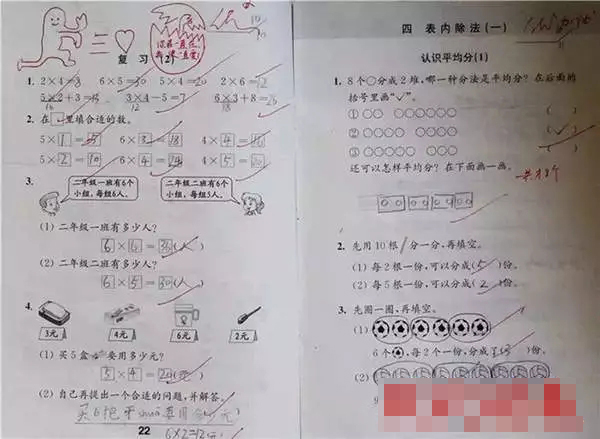 复 习 (2)
1. 2×4=8 6×5=30 5×4=20 2×6=12
5×2+3=13 3×4-5=7 6×3+8=26
10 12 18
2. 在□里填合适的数。
5×1=5 6×3=18 4×4=16
5×2=10 6×4=24 4×5=20
3.
二年级一班有6个小组,每组6人。
二年级二班有6个小组,每组5人。
(1) 二年级一班有多少人?
6×6=36(人)
(2) 二年级二班有多少人?
6×5=30(人)
4.
3元 4元 6元 2元
(1) 买5盒 要用多少元?
5×4=20(元)
(2) 自己再提出一个合适的问题,并解答。
买6把牙shuā要用多少元
22
6×2=12
四 表内除法(一)
认识平均分(1)
1. 8个○分成2堆,哪一种分法是平均分?在后面的
括号里画“✓”。
① ○○ ○○○○○○ ( )
② ○○○○ ○○○○ (✓)
③ ○○○○○ ○○○ ( )
还可以怎样平均分?在下面画一画。
共有8个
2. 先用10根 分一分,再填空。
(1) 每2根一份,可以分成(5)份。
(2) 每5根一份,可以分成(2)份。
3. 先圈一圈,再填空。
(1)
6个 ,每2个一份,分成了(3)份。
(2)
9